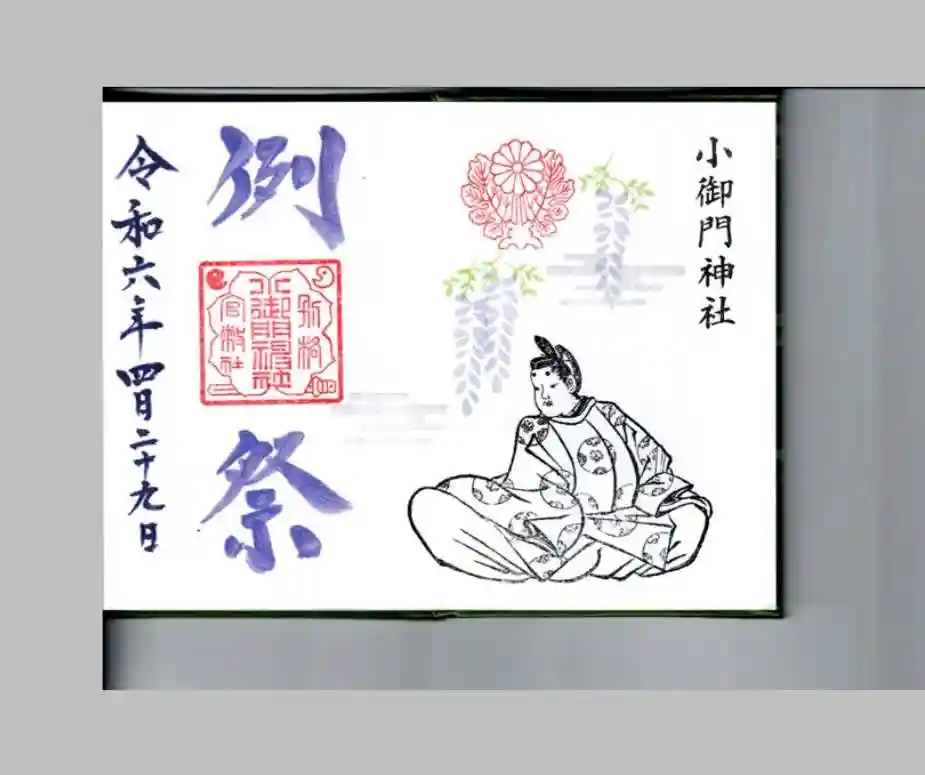 小御門神社
例祭
別格
小御門神社
官幣社
令和六年四月二十九日